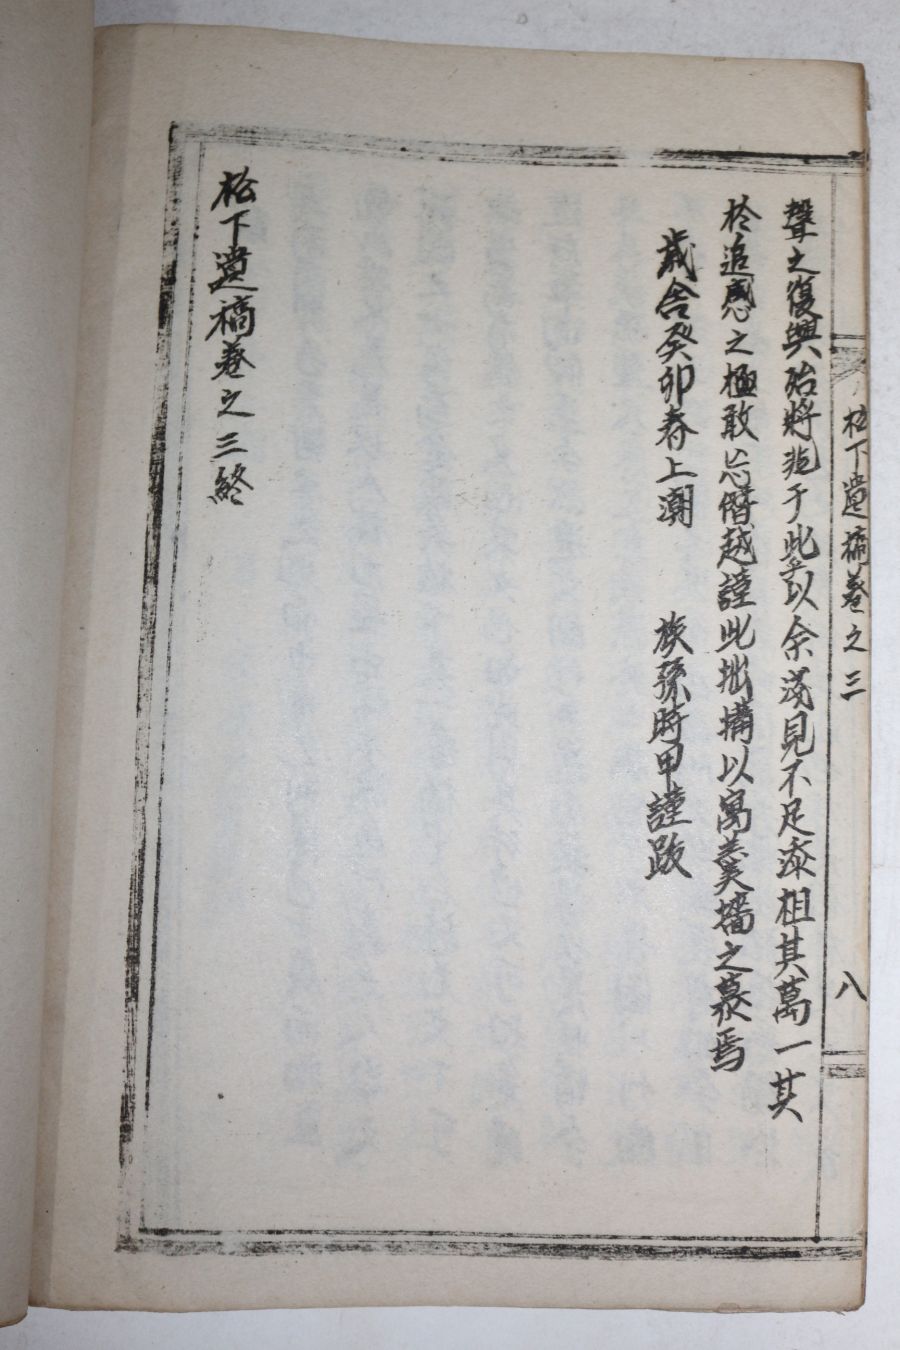 松下遺稿卷之三
八
聲之復興殆將兆于此乎以余淺見不足添相其萬一其
於追感之極敢忘僭越謹此拙搆以寓羹墻之慕焉
歲舍癸卯春上潮 族孫時甲謹跋
松下遺稿卷之三終